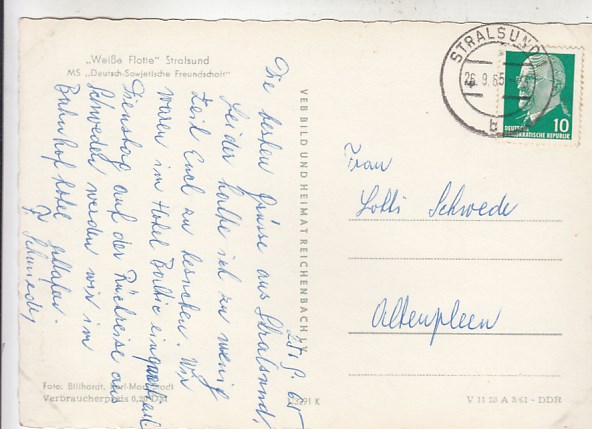 „Weiße Flotte“ Stralsund
MS „Deutsch-Sowjetische Freundschaft“
25. 9. 65
Die besten Grüsse aus Stralsund,
leider hatte ich zu wenig
Zeit Euch zu besuchen. Wir
waren im Hotel Baltic einquartiert
Dienstag auf der Rückreise aus
Schweden werden wir im
Bahnhof Hotel schlafen.
VEB BILD UND HEIMAT REICHENBACH I. V.
Foto: Billhardt, Karl-Marx-Stadt
Verbraucherpreis 0,20 DM
STRALSUND
26.9.65
b
10
DEUTSCHE
DEMOKRATISCHE REPUBLIK
Frau
Lotti Schwede
Altenpleen
V 11 28 A 3/61 - DDR